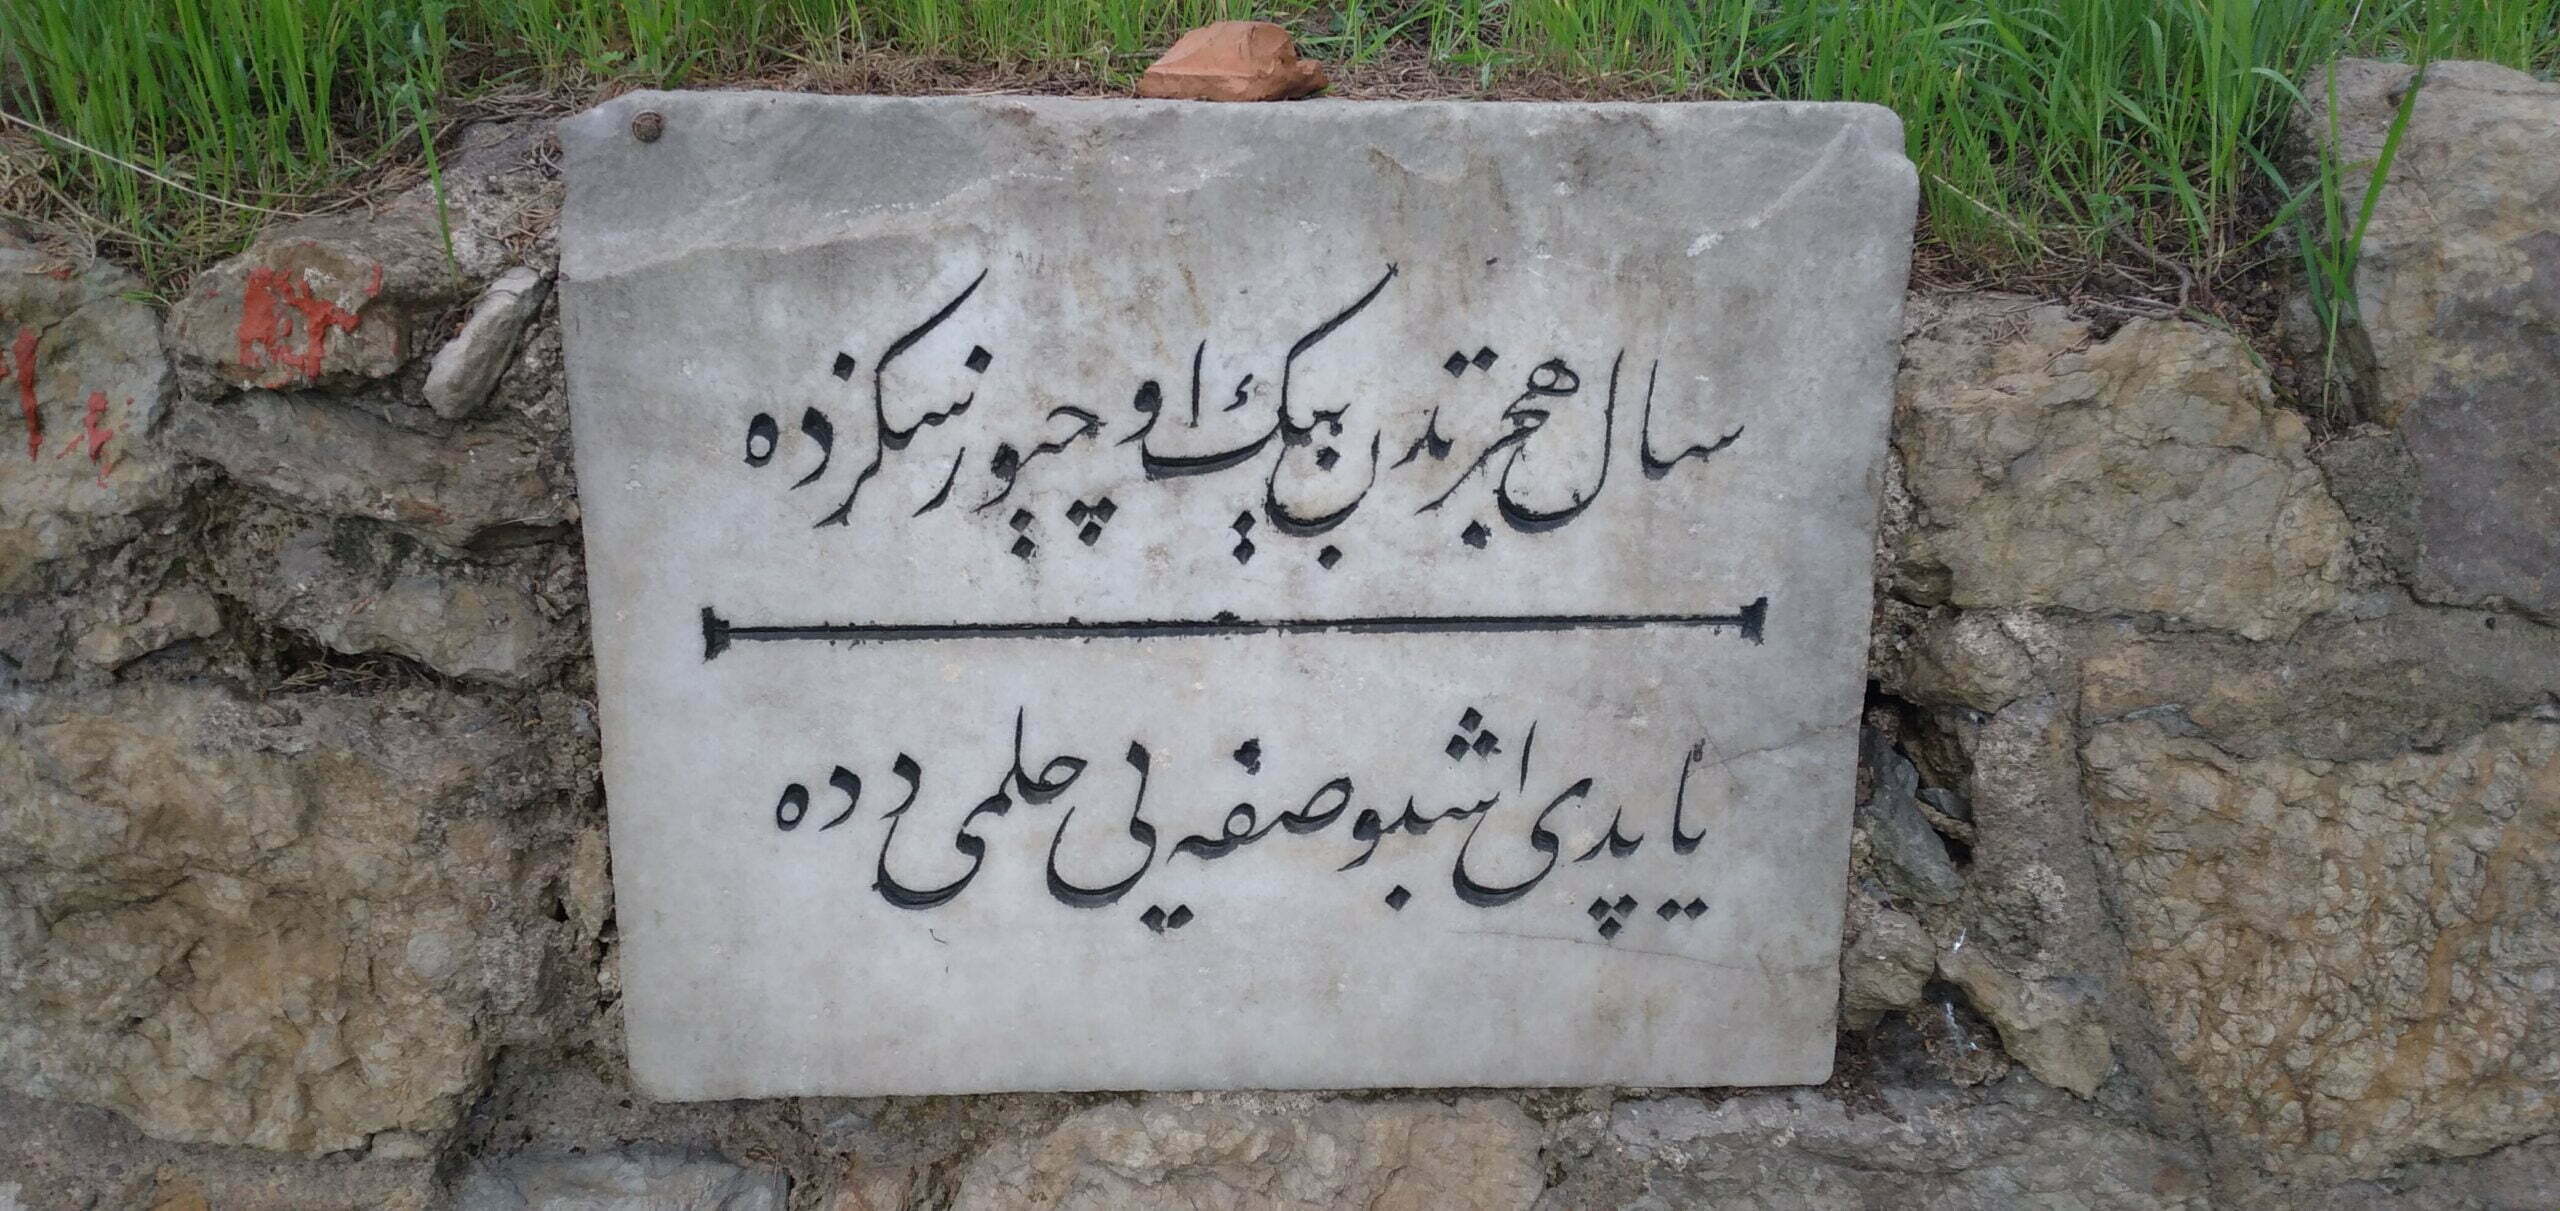 سال هجرتدن بيك اوچيوز سكزده
ياپدى اشبو صفه يى حلمى دده